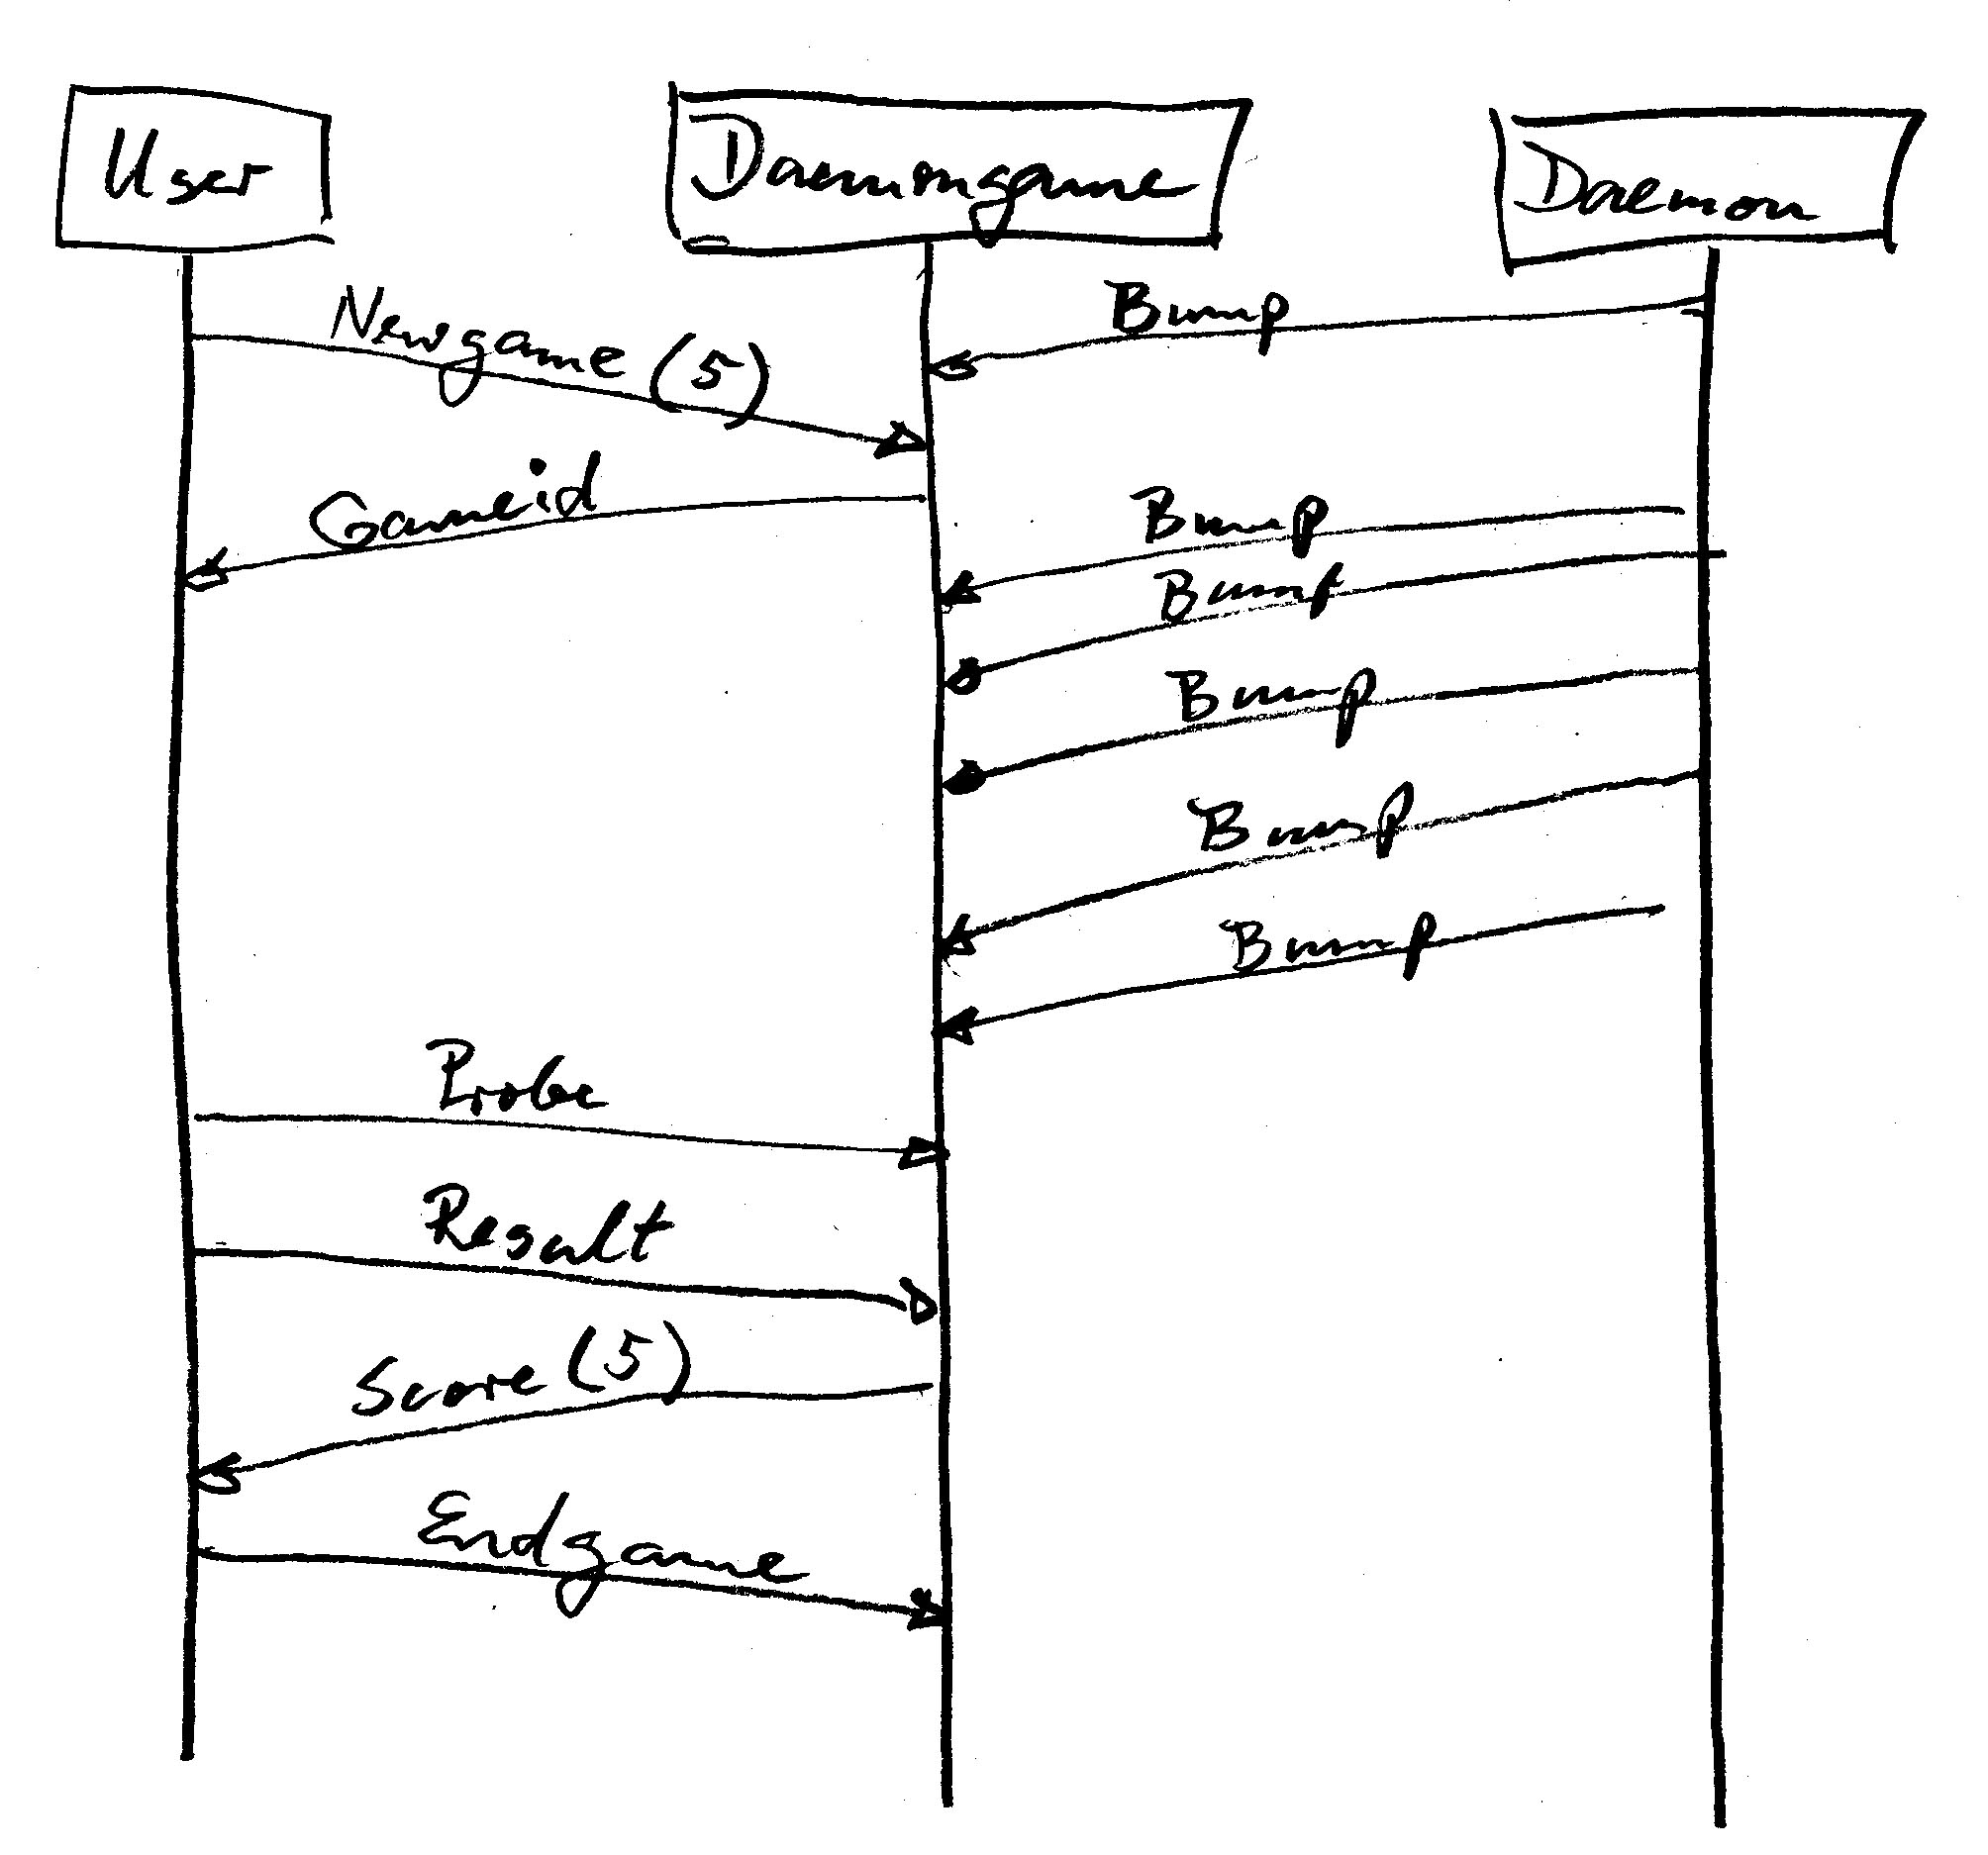 User
Daemongame
Daemon
Bump
Newgame (5)
Gameid
Bump
Bump
Bump
Bump
Bump
Probe
Result
Score (5)
Endgame